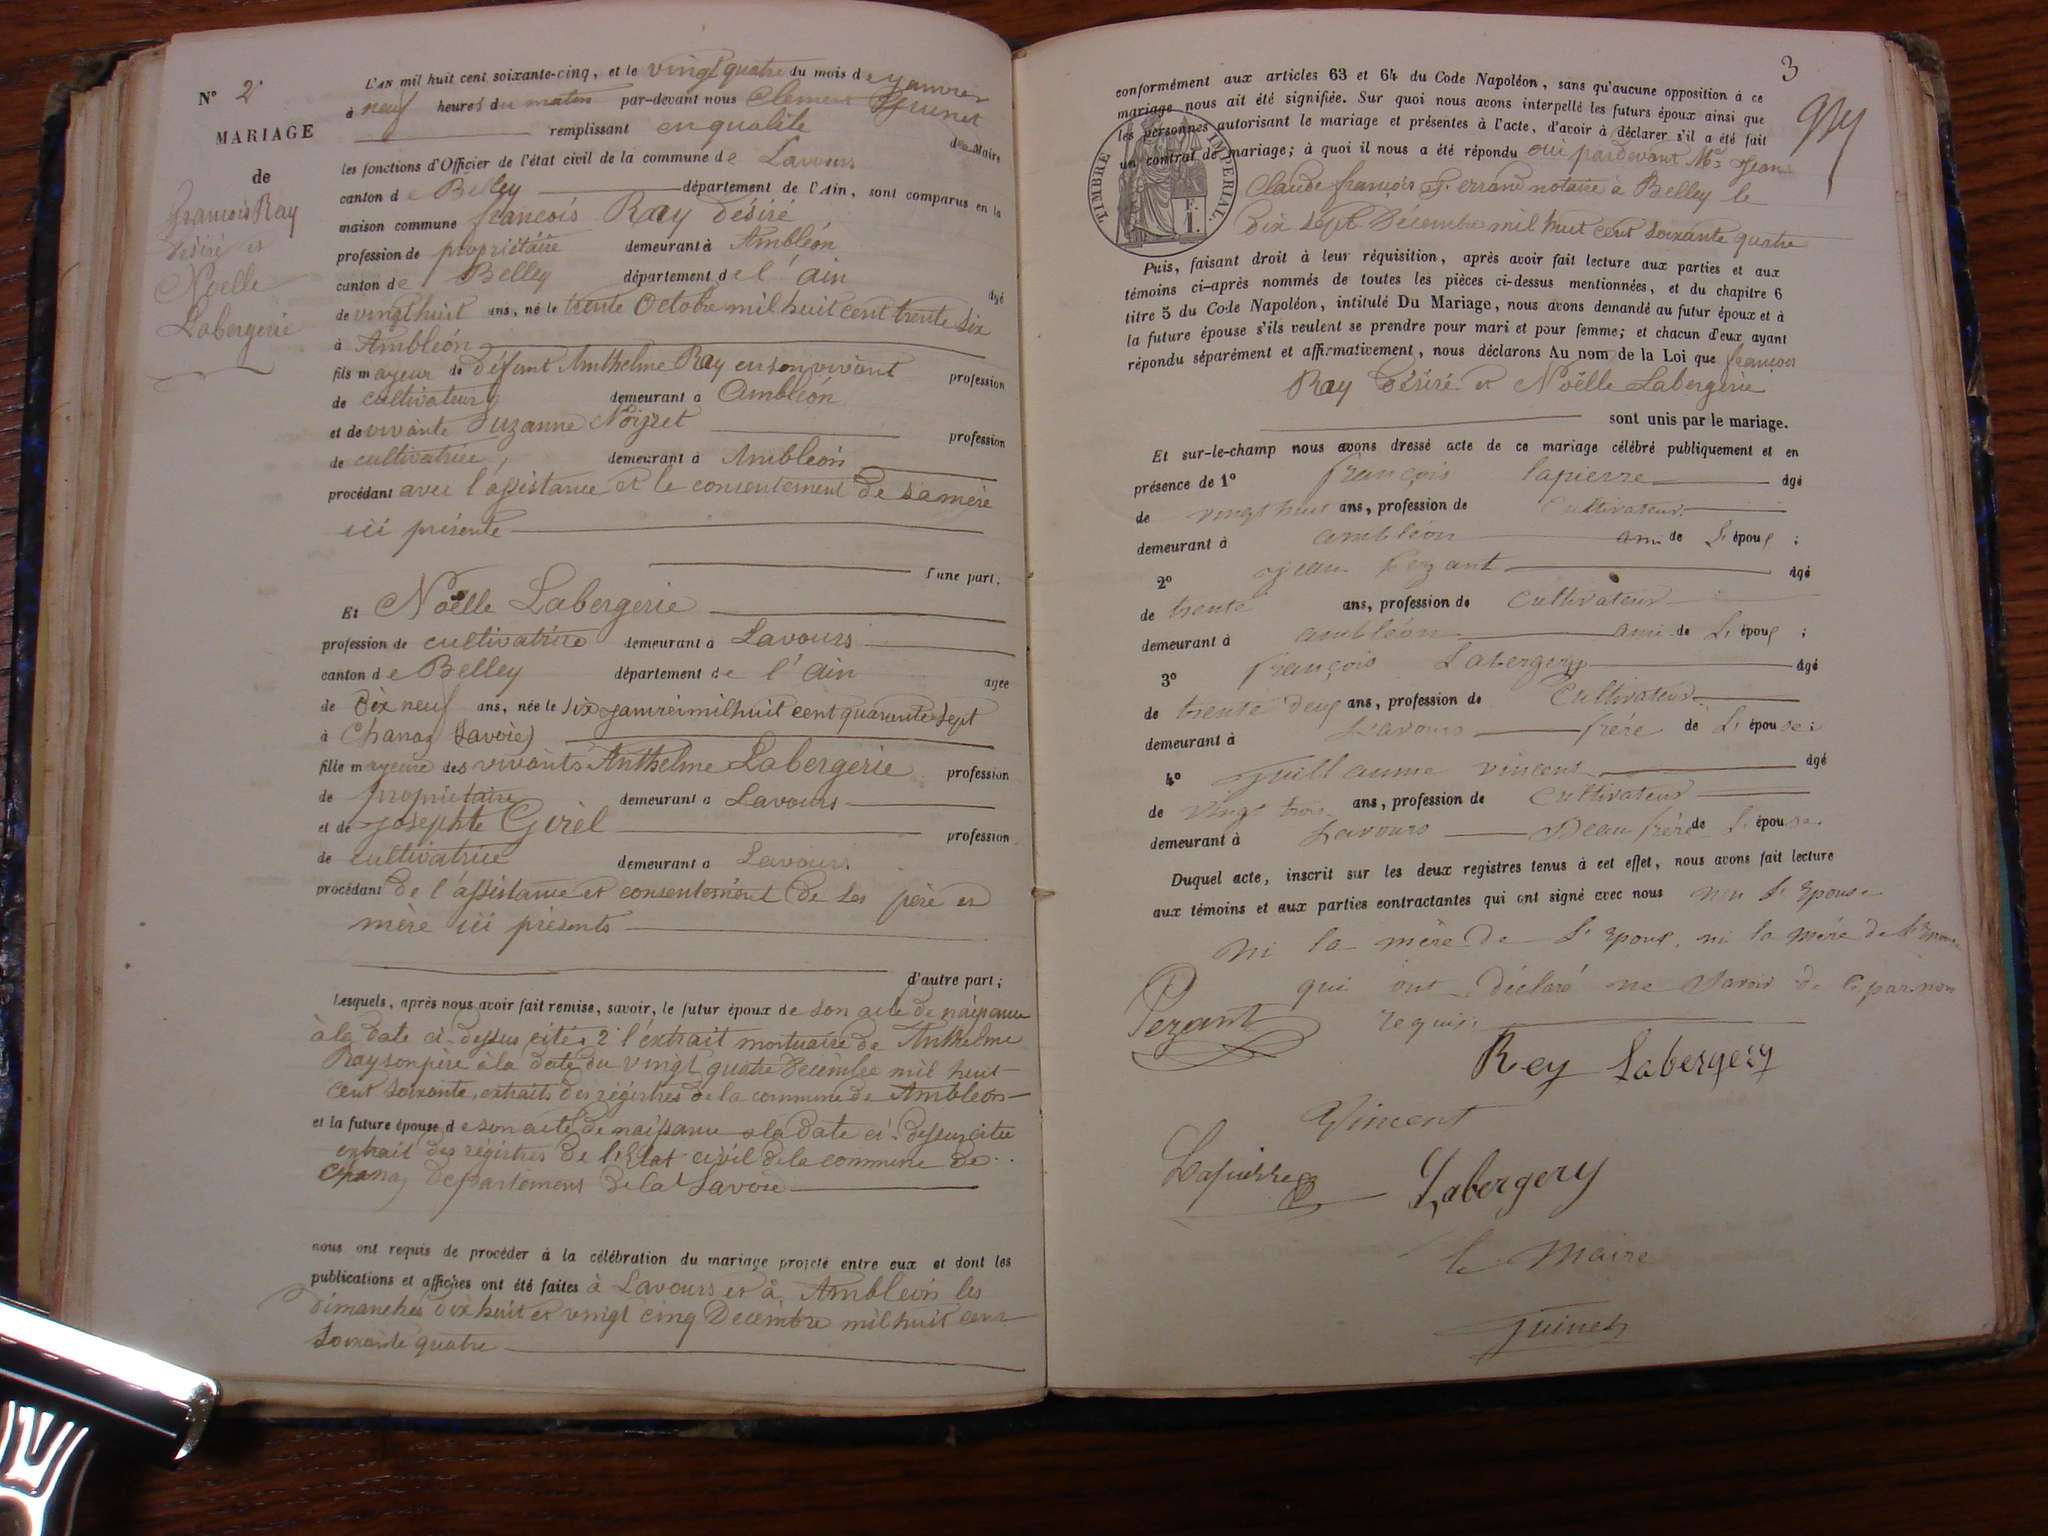 N° 2
MARIAGE
de
françois Ray
Désiré et
Noëlle
Labergerie
L'AN mil huit cent soixante-cinq, et le vingt quatre du mois de Janvier
à neuf heures du matin par-devant nous Clément
remplissant en qualité de Maire
les fonctions d'Officier de l'état civil de la commune de Lavours
canton de Belley département de l'Ain, sont comparus en la
maison commune françois Ray Désiré
profession de propriétaire demeurant à Ambléon
canton de Belley département de l'ain âgé
de vingt huit ans, né le trente Octobre mil huit cent trente six
à Ambléon
fils mayeur de défunt Anthelme Ray en son vivant profession
de cultivateur demeurant à Ambléon
et de vivante Suzanne profession
de cultivatrice, demeurant à Ambléon
procédant avec l'assistance et le consentement de sa mère
ici présente
d'une part;
Et Noëlle Labergerie
profession de cultivatrice demeurant à Lavours
canton de Belley département de l'ain agée
de Dix neuf ans, née le six janvier mil huit cent quarante sept
à Chanaz (Savoie)
fille mayeure des vivants Anthelme Labergerie profession
de propriétaire demeurant à Lavours
et de Josephte Girel profession
de cultivatrice demeurant à Lavours
procédant de l'assistance et consentement de ses père et
mère ici présents
d'autre part;
Lesquels, après nous avoir fait remise, savoir, le futur époux de son acte de naissance
à la date ci-dessus citée 2° l'extrait mortuaire de Anthelme
Ray son père à la date du vingt quatre Décembre mil huit
cent soixante, extraits des régistres de la commune de Ambléon
et la future épouse de son acte de naissance à la date ci-dessus citée
extrait des régistres de l'Etat civil de la commune de
Chanaz département de la Savoie
nous ont requis de procéder à la célébration du mariage projeté entre eux et dont les
publications et affiches ont été faites à Lavours et à Ambléon les
dimanches dix huit et vingt cinq Décembre mil huit cent
soixante quatre
3
conformément aux articles 63 et 64 du Code Napoléon, sans qu'aucune opposition à ce
mariage nous ait été signifiée. Sur quoi nous avons interpellé les futurs époux ainsi que
les personnes autorisant le mariage et présentes à l'acte, d'avoir à déclarer s'il a été fait
un contrat de mariage; à quoi il nous a été répondu oui pardevant Me Jean
Claude françois notaire à Belley le
Dix sept Décembre mil huit cent soixante quatre
TIMBRE IMPERIAL
Puis, faisant droit à leur réquisition, après avoir fait lecture aux parties et aux
témoins ci-après nommés de toutes les pièces ci-dessus mentionnées, et du chapitre 6
titre 5 du Code Napoléon, intitulé Du Mariage, nous avons demandé au futur époux et à
la future épouse s'ils veulent se prendre pour mari et pour femme; et chacun d'eux ayant
répondu séparément et affirmativement, nous déclarons Au nom de la Loi que françois
Ray Désiré et Noëlle Labergerie
sont unis par le mariage.
Et sur-le-champ nous avons dressé acte de ce mariage célébré publiquement et en
présence de 1° françois lapierre âgé
de vingt huit ans, profession de Cultivateur
demeurant à ambléon ami de L'époux;
2° jean Pezant âgé
de trente ans, profession de Cultivateur
demeurant à ambléon ami de L'époux;
3° françois Labergery âgé
de trente deux ans, profession de Cultivateur
demeurant à Lavours frère de L'épouse;
4° Guillaume vincent âgé
de vingt trois ans, profession de Cultivateur
demeurant à Lavours Beau frère de L'épouse.
Duquel acte, inscrit sur les deux registres tenus à cet effet, nous avons fait lecture
aux témoins et aux parties contractantes qui ont signé avec nous non L'Epouse
ni la mère de L'Epoux, ni la mère de L'Epouse
qui ont déclaré ne Savoir de ce par nous
requis.
Pezant
Rey Labergery
Vincent
Lapierre Labergery
le Maire